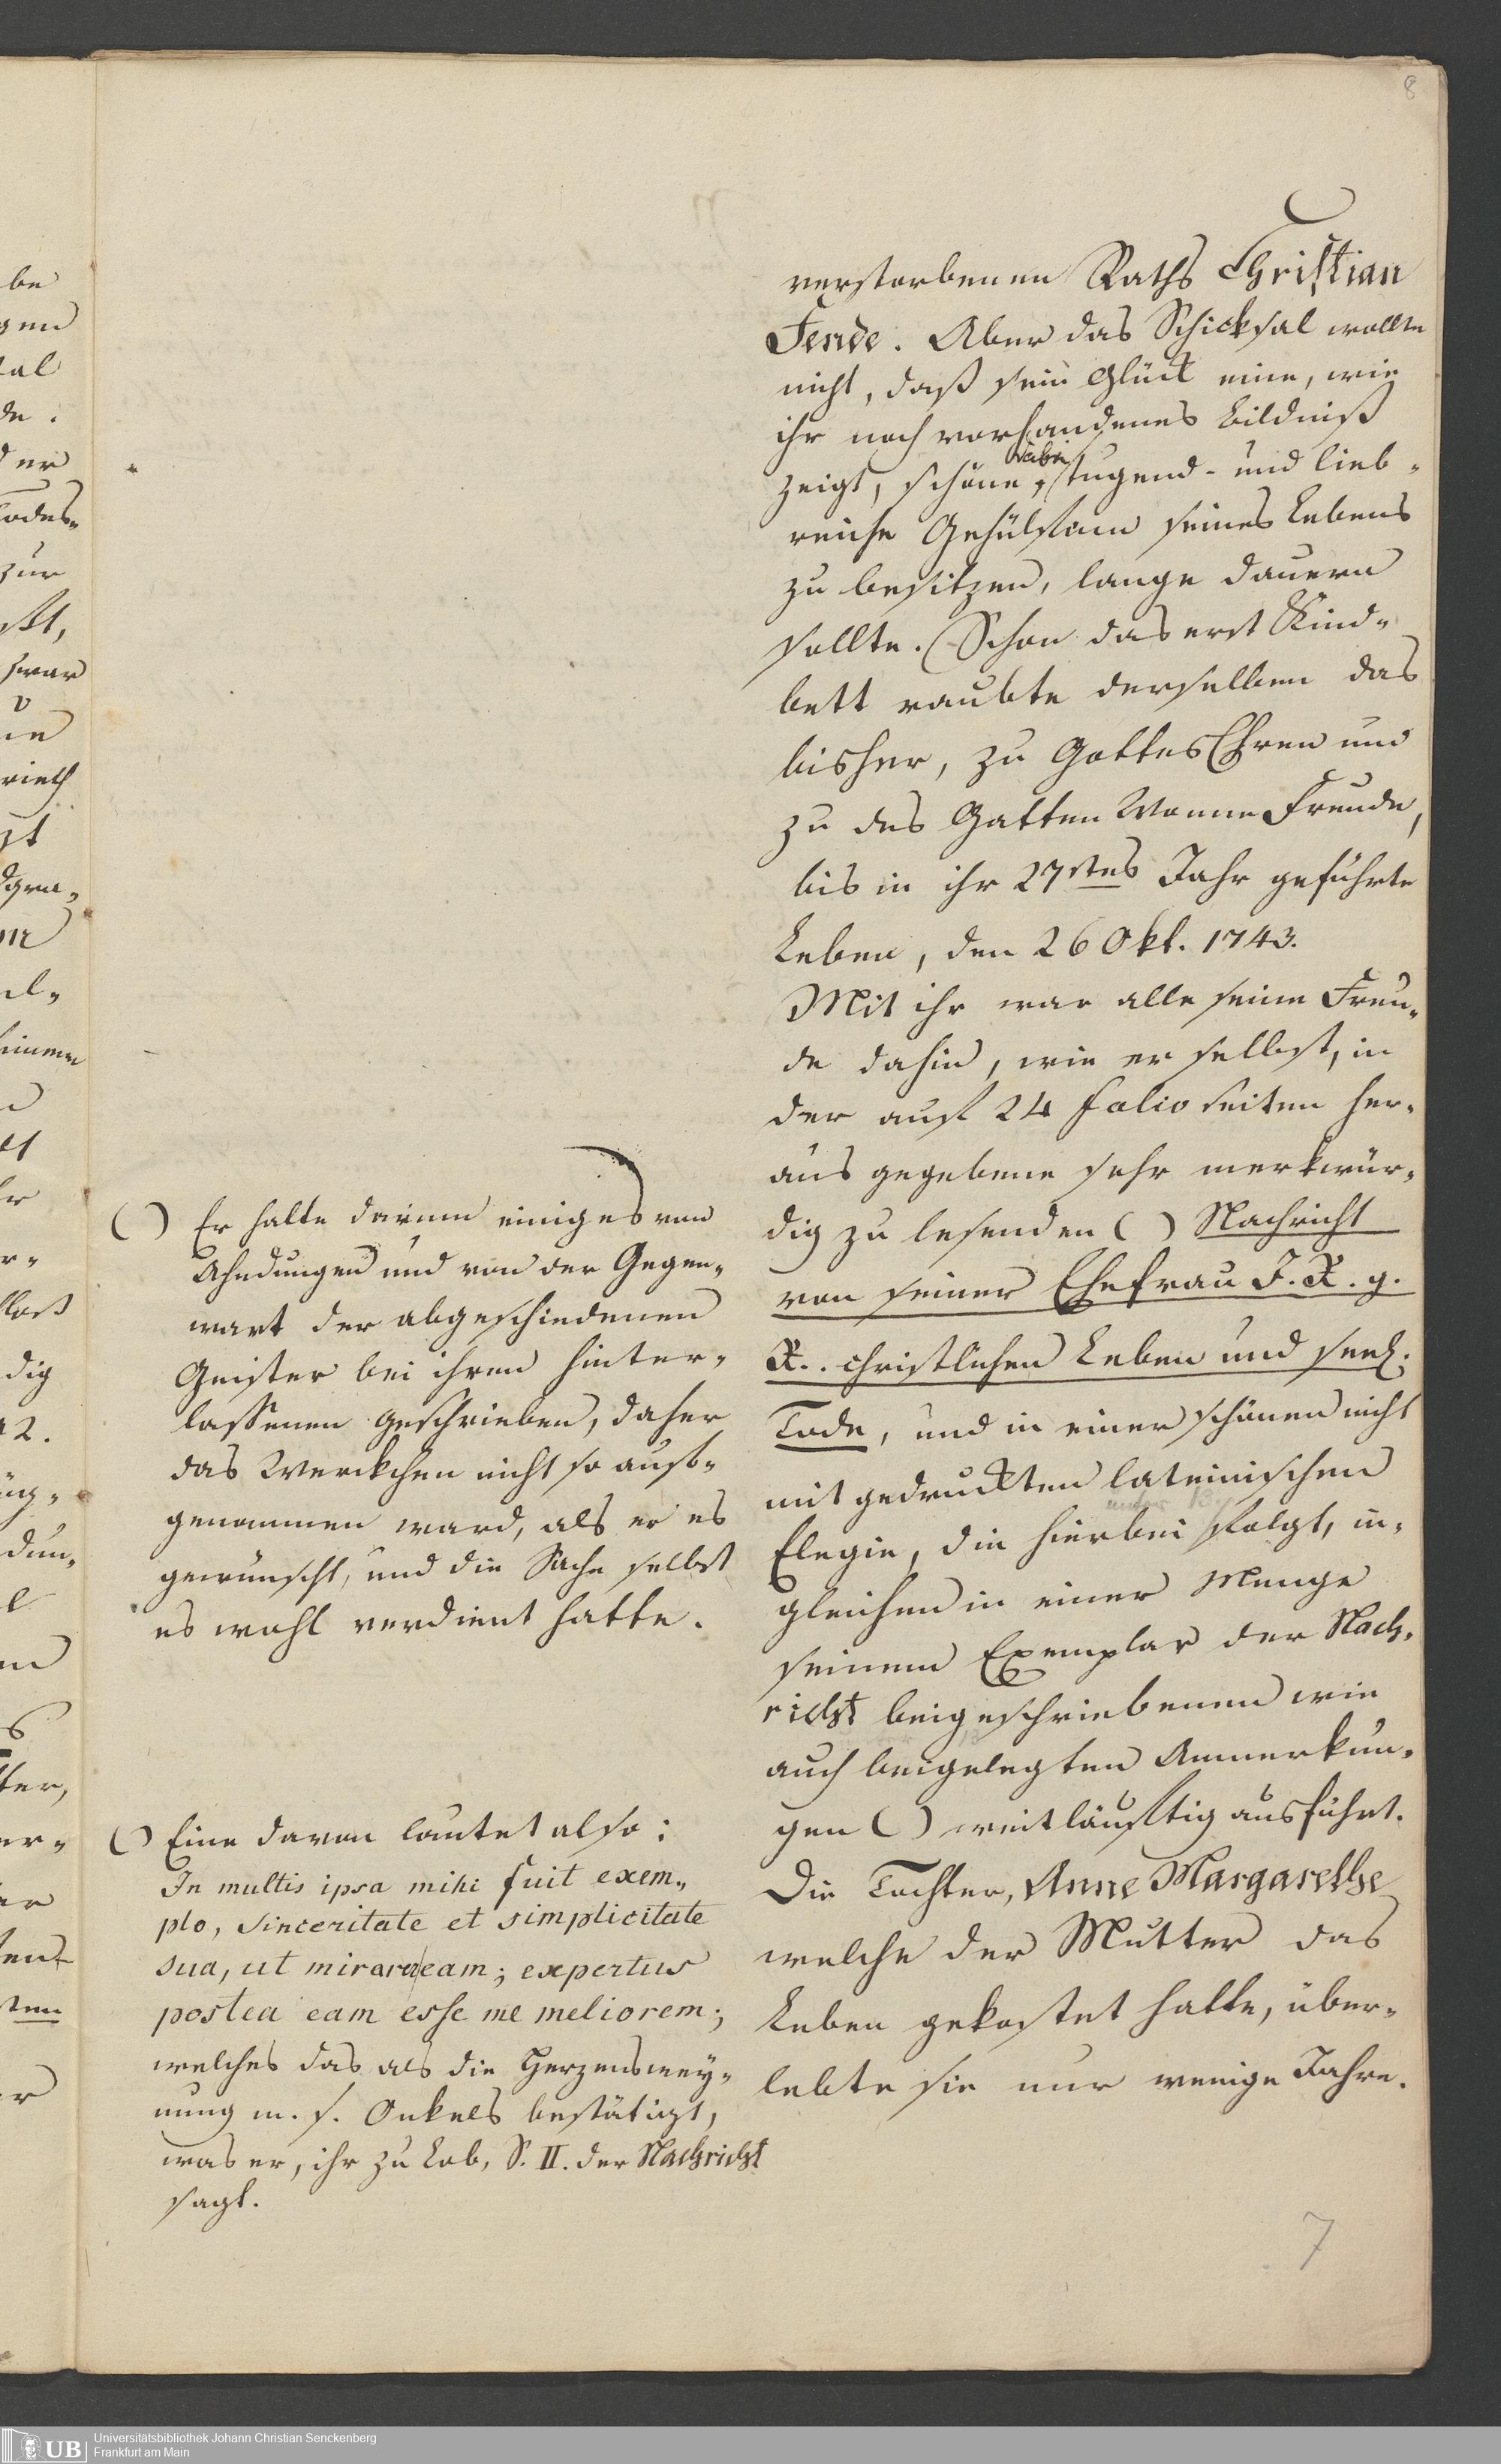 8
verstorbenen Raths Christian
Fende. Aber das Schicksal wollte
nicht, daß sein Glück eine, wie
ihr noch vorhandenes Bildniß
zeigt, schöne, dabei tugend- und lieb-
reiche Gehülfin seines Lebens
zu besitzen, lange dauern
sollte. Schon das erst Kind-
bett raubte derselben das
bisher, zu Gottes Ehren und
zu des Gatten Wonne Freude,
bis in ihr 27stes Jahr geführte
Leben, den 26 Okt. 1743.
Mit ihr war alle seine Freu-
de dahin, wie er selbst, in
der auf 24 Folio seiten her-
aus gegebene sehr merkwür-
dig zu lesenden ( ) Nachricht
von seiner Ehefrau J. R. g.
R.. christlichen Leben und seel.
Tode, und in einer schönen nicht
mit gedruckten lateinischen
Elegie, die hierbei unter folgt, in-
gleichen in einer Menge
seinem Exemplar der Nach-
richt beigeschriebenen wie
auch beigelegten Anmerkun-
gen ( ) weitläuftig ausführt.
Die Tochter, Anne Margarethe
welche der Mutter das
Leben gekostet hatte, über-
lebte sie nur wenige Jahre.
( ) Er hatte darinn einiges von
Ahndungen und von der Gegen-
wart der abgeschiedenen
Geister bei ihren hinter-
lassenen geschrieben, daher
das Werckchen nicht so auf-
genommen ward, als er es
gewünscht, und die Sache selbst
es wohl verdient hatte.
( ) Eine davon lautet also:
In multis ipsa mihi fuit exem-
plo, Sinceritate et simplicitate
sua, ut mirarer eam; expertus
postea eam esse me meliorem;
welches das als die Herzensmey-
nung m. s. Onkels bestätigt,
was er, ihr zu Lob, S. II. der Nachricht
sagt.
7
UB
Universitätsbibliothek Johann Christian Senckenberg
Frankfurt am Main